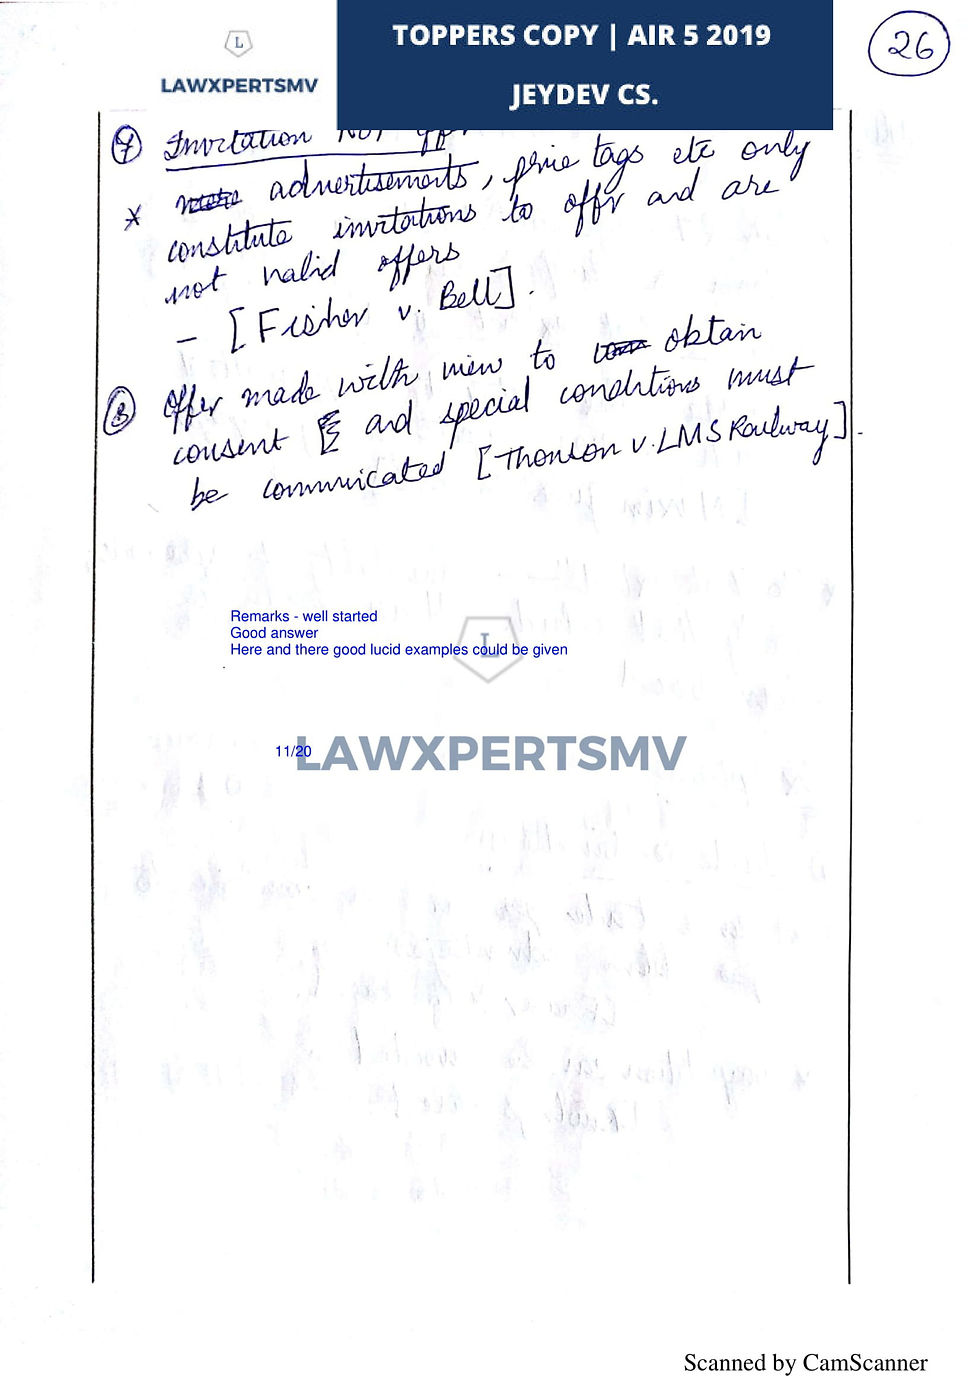 L
LAWXPERTSMV
TOPPERS COPY | AIR 5 2019
JEYDEV CS.
26
7 Invitation Not
* advertisements, price tags etc only
constitute invitations to offr and are
not valid offers
- [Fisher v. Bell].
8 Offer made with view to obtain
consent and special conditions must
be communicated [Thomson v. LMS Railway].
Remarks - well started
Good answer
Here and there good lucid examples could be given
L
11/20
LAWXPERTSMV
Scanned by CamScanner